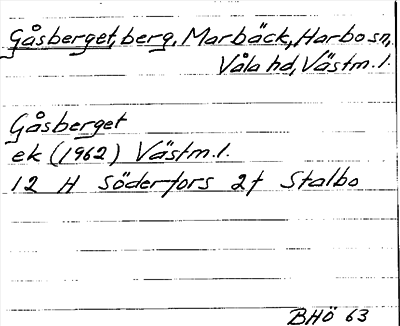 Gåsberget, berg, Marbäck, Harbo sn,
Våla hd, Västm.l.
Gåsberget
ek (1962) Västm.l.
12 H Söderfors 2f Stalbo
BHÖ 63